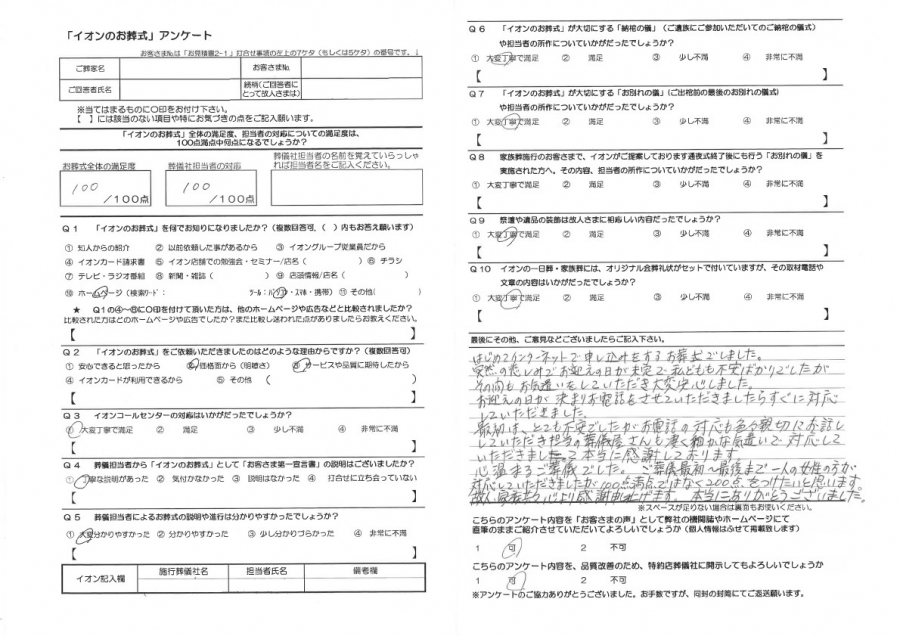 「イオンのお葬式」アンケート
お客さま№は「お見積書2-1」打合せ事項の左上の7ケタ(もしくは5ケタ)の番号です。↓
ご葬家名
お客さま№
ご回答者氏名
続柄(ご回答者に
とって故人さまは)
※当てはまるものに○印をお付け下さい。
【 】には該当のない項目や特にお気づきの点をご記入願います。
「イオンのお葬式」全体の満足度、担当者の対応についての満足度は、
100点満点中何点になるでしょうか?
お葬式全体の満足度
葬儀社担当者の対応
葬儀社担当者の名前を覚えていらっしゃ
れば担当者名をご記入ください。
100 /100点
100 /100点
Q1 「イオンのお葬式」を何でお知りになりましたか?(複数回答可、( )内もお答え願います)
① 知人からの紹介 ② 以前依頼した事があるから ③ イオングループ従業員だから
④ イオンカード請求書 ⑤ イオン店舗での勉強会・セミナー/店名( ) ⑥ チラシ
⑦ テレビ・ラジオ番組 ⑧ 新聞・雑誌( ) ⑨ 店頭情報/店名( )
⑩ ホームページ(検索ワード: ツール:パソコン・スマホ・携帯) ⑪ その他( )
★ Q1の④~⑩に○印を付けて頂いた方は、他のホームページや広告などと比較されましたか?
比較された方はどのホームページや広告でしたか?また比較し迷われた点がありましたらお教えください。
【 】
Q2 「イオンのお葬式」をご依頼いただきましたのはどのような理由からですか?(複数回答可)
① 安心できると思ったから ② 価格面から(明瞭さ) ③ サービスや品質に期待したから
④ イオンカードが利用できるから ⑤ その他 ( )
【 】
Q3 イオンコールセンターの対応はいかがだったでしょうか?
① 大変丁寧で満足 ② 満足 ③ 少し不満 ④ 非常に不満
【 】
Q4 葬儀担当者から「イオンのお葬式」として「お客さま第一宣言書」の説明はございましたか?
① 丁寧な説明があった ② 気付かなかった ③ 説明はなかった ④ 打合せに立ち会っていない
【 】
Q5 葬儀担当者によるお葬式の説明や進行は分りやすかったでしょうか?
① 大変分りやすかった ② 分かりやすかった ③ 少し分りづらかった ④ 非常に不満
【 】
イオン記入欄
施行葬儀社名
担当者氏名
備考欄
Q6 「イオンのお葬式」が大切にする「納棺の儀」(ご遺族にご参加いただいてのご納棺の儀式)
や担当者の所作についていかがだったでしょうか?
① 大変丁寧で満足 ② 満足 ③ 少し不満 ④ 非常に不満
【 】
Q7 「イオンのお葬式」が大切にする「お別れの儀」(ご出棺前の最後のお別れの儀式)
や担当者の所作についていかがだったでしょうか?
① 大変丁寧で満足 ② 満足 ③ 少し不満 ④ 非常に不満
【 】
Q8 家族葬施行のお客さまで、イオンがご提案しております通夜式終了後にも行う「お別れの儀」を
実施された方へ。その内容、担当者の所作についていかがだったでしょうか?
① 大変丁寧で満足 ② 満足 ③ 少し不満 ④ 非常に不満
【 】
Q9 祭壇や遺品の装飾は故人さまに相応しい内容だったでしょうか?
① 大変丁寧で満足 ② 満足 ③ 少し不満 ④ 非常に不満
【 】
Q10 イオンの一日葬・家族葬には、オリジナル会葬礼状がセットで付いていますが、その取材電話や
文章の内容はいかがだったでしょうか?
① 大変丁寧で満足 ② 満足 ③ 少し不満 ④ 非常に不満
【 】
最後にその他、ご意見などございましたらご記入下さい。
はじめてインターネットで申し込みをするお葬式でしました。
突然の悲しみでお迎えの日が未定で私どもも不安ばかりでしたが
その間もお気遣いをしていただき大変安心しました。
お迎えの日が決まりお電話をさせていただきましたらすぐに対応
していただきました。
最初は、とても不安でしたがお電話の対応も色々親切にお話し
していただき担当の葬儀屋さんも凄く細かな気遣いで対応して
いただきまして本当に感謝しております。
心温まるご葬儀でした。 ご葬儀最初~最後まで一人の女性の方が
対応していただきましたが100点満点ではなく200点をつけたいと思います。
故人、家族共々心より感謝申し上げます。本当にありがとうございました。
※スペースが足りない場合は裏面もお使いください。
こちらのアンケート内容を「お客さまの声」として弊社の機関誌やホームページにて
直筆のままご紹介させていただいてよろしいでしょうか(個人情報はふせて掲載致します)
1 可 2 不可
こちらのアンケート内容を、品質改善のため、特約店葬儀社に開示してもよろしいでしょうか
1 可 2 不可
※アンケートのご協力ありがとうございました。お手数ですが、同封の封筒にてご返送願います。